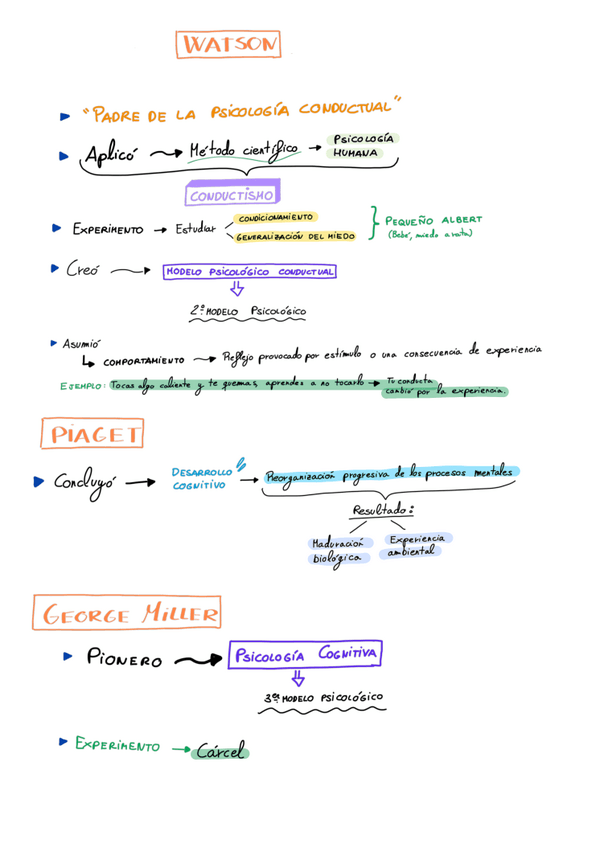 WATSON
"PADRE DE LA PSICOLOGÍA CONDUCTUAL"
Aplicó → Método científico → PSICOLOGÍA
HUMANA
CONDUCTISMO
EXPERIMENTO → Estudiar
CONDICIONAMIENTO
GENERALIZACIÓN DEL MIEDO
PEQUEÑO ALBERT
(Bebé, miedo a rata)
Creó → MODELO PSICOLÓGICO CONDUCTUAL
2º MODELO PSICOLÓGICO
Asumió
COMPORTAMIENTO → Reflejo provocado por estímulo o una consecuencia de experiencia
EJEMPLO: Tocas algo caliente y te quemas, aprendes a no tocarlo → Tu conducta
cambió por la experiencia
PIAGET
Concluyó → DESARROLLO
COGNITIVO → Reorganización progresiva de los procesos mentales
Resultado:
Maduración
biológica
Experiencia
ambiental
GEORGE MILLER
PIONERO → PSICOLOGÍA COGNITIVA
3er MODELO PSICOLÓGICO
EXPERIMENTO → Cárcel